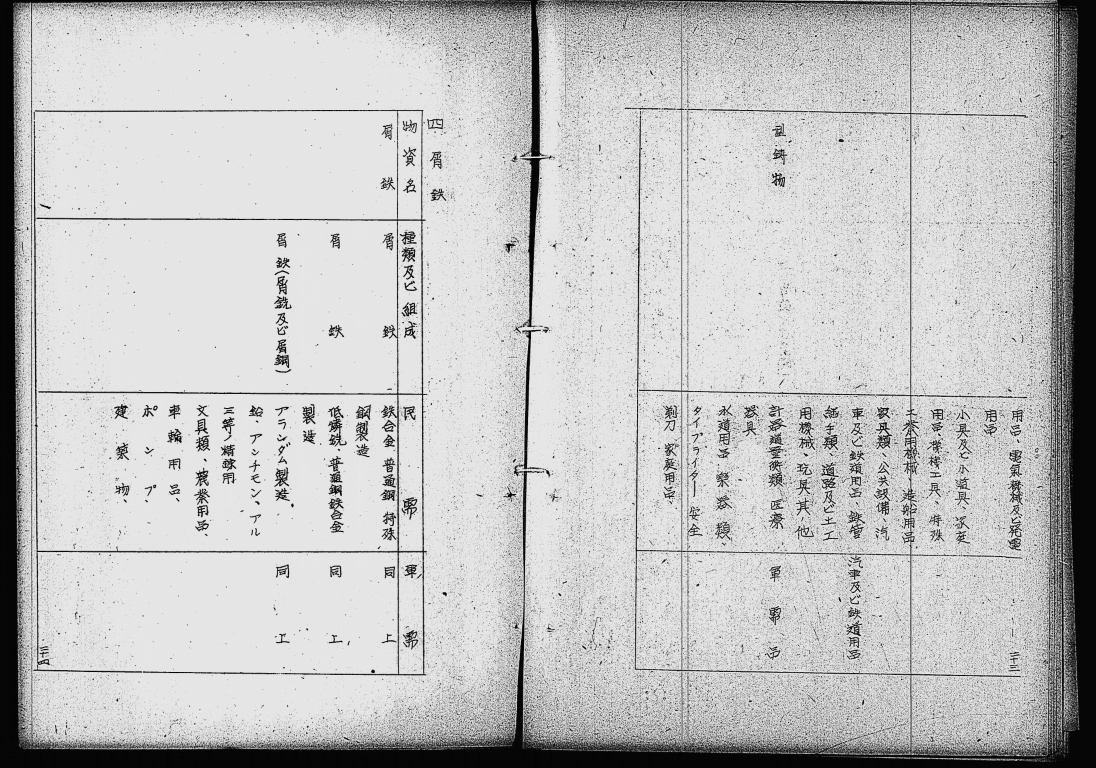 用品、電気機械及ビ発電
用品
小農具及ビ小道具、家庭
用品、機械工具、特殊
工業用機械、造船用品
家具類、公共設備、汽
車及ビ鉄道用品、鉄管
継手類、道路及ビ土工
用機械、玩具其ノ他
計器 類 医療
器具
水道用品 楽器類、
タイプライター 安全
剃刀 家庭用品、
鋳物
汽車及ビ鉄道用品
軍需品
二十三
四 屑鉄
物資名
種類及ビ組成
民需
軍需
屑鉄
屑鉄
鉄合金 普通鋼 特殊
鋼製造
同上
屑鉄
低燐銑、普通鋼鉄合金
製造
同上
屑鉄(屑銑及ビ屑鋼)
アランダム製造、
鉛、アンチモン、アル
三等ノ精錬用
文具類、農業用品、
車輛用品、
ポンプ、
建築物、
同上
二十四